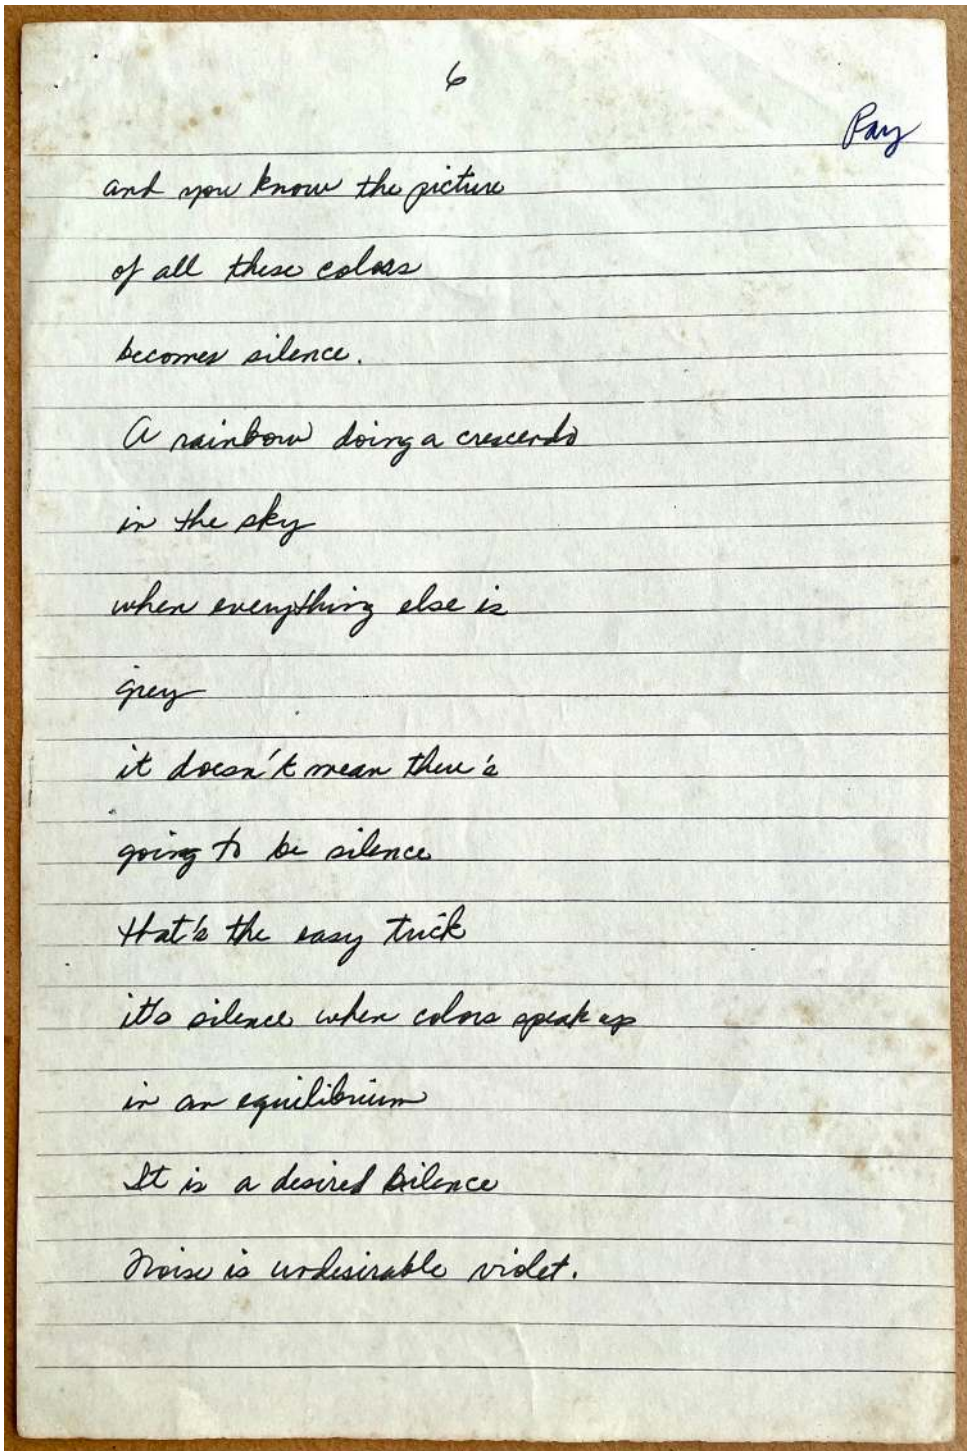 6
Pay
and you know the picture
of all these colors
becomes silence.
A rainbow doing a crescendo
in the sky
when everything else is
grey
it doesn't mean there's
going to be silence
that's the easy trick
it's silence when colors speak up
in an equilibrium
It is a desired silence
Noise is undesirable violet.